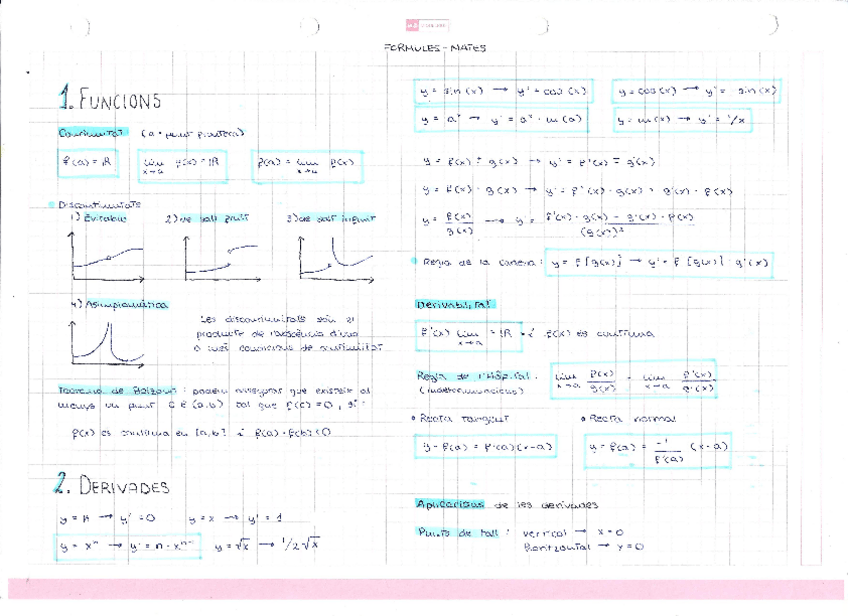 FORMULES - MATES
1. FUNCIONS
Continuïtat (a = punt frontera)
f(a) = ℝ
lim x→a f(x) = ℝ
f(a) = lim x→a f(x)
Discontinuïtats
1) Evitable
2) de salt finit
3) de salt infinit
4) Asimptomàtica
Les discontinuïtats són el
producte de l'absència d'una
o més condicions de continuïtat
Teorema de Bolzano: podem assegurar que existeix al
menys un punt c ∈ (a,b) tal que f(c) = 0, si:
f(x) és contínua en [a,b] i f(a) · f(b) < 0
2. DERIVADES
y = k → y' = 0
y = x → y' = 1
y = xⁿ → y' = n · xⁿ⁻¹
y = √x → 1/2√x
y = sin(x) → y' = cos(x)
y = cos(x) → y' = - sin(x)
y = aˣ → y' = aˣ · ln(a)
y = ln(x) → y' = 1/x
y = f(x) ± g(x) → y' = f'(x) ± g'(x)
y = f(x) · g(x) → y' = f'(x) · g(x) + g'(x) · f(x)
y = f(x)/g(x) → y' = f'(x) · g(x) - g'(x) · f(x) / (g(x))²
Regla de la cadena: y = f[g(x)] → y' = f'[g(x)] · g'(x)
Derivabilitat
f'(x) lim x→a = ℝ i f(x) és contínua
Regla de l'Hôpital:
(indeterminacions)
lim x→a f(x)/g(x) = lim x→a f'(x)/g'(x)
Recta tangent
y - f(a) = f'(a)(x-a)
Recta normal
y - f(a) = -1/f'(a) (x-a)
Aplicacions de les derivades
Punts de tall: vertical → x=0
Horitzontal → y=0